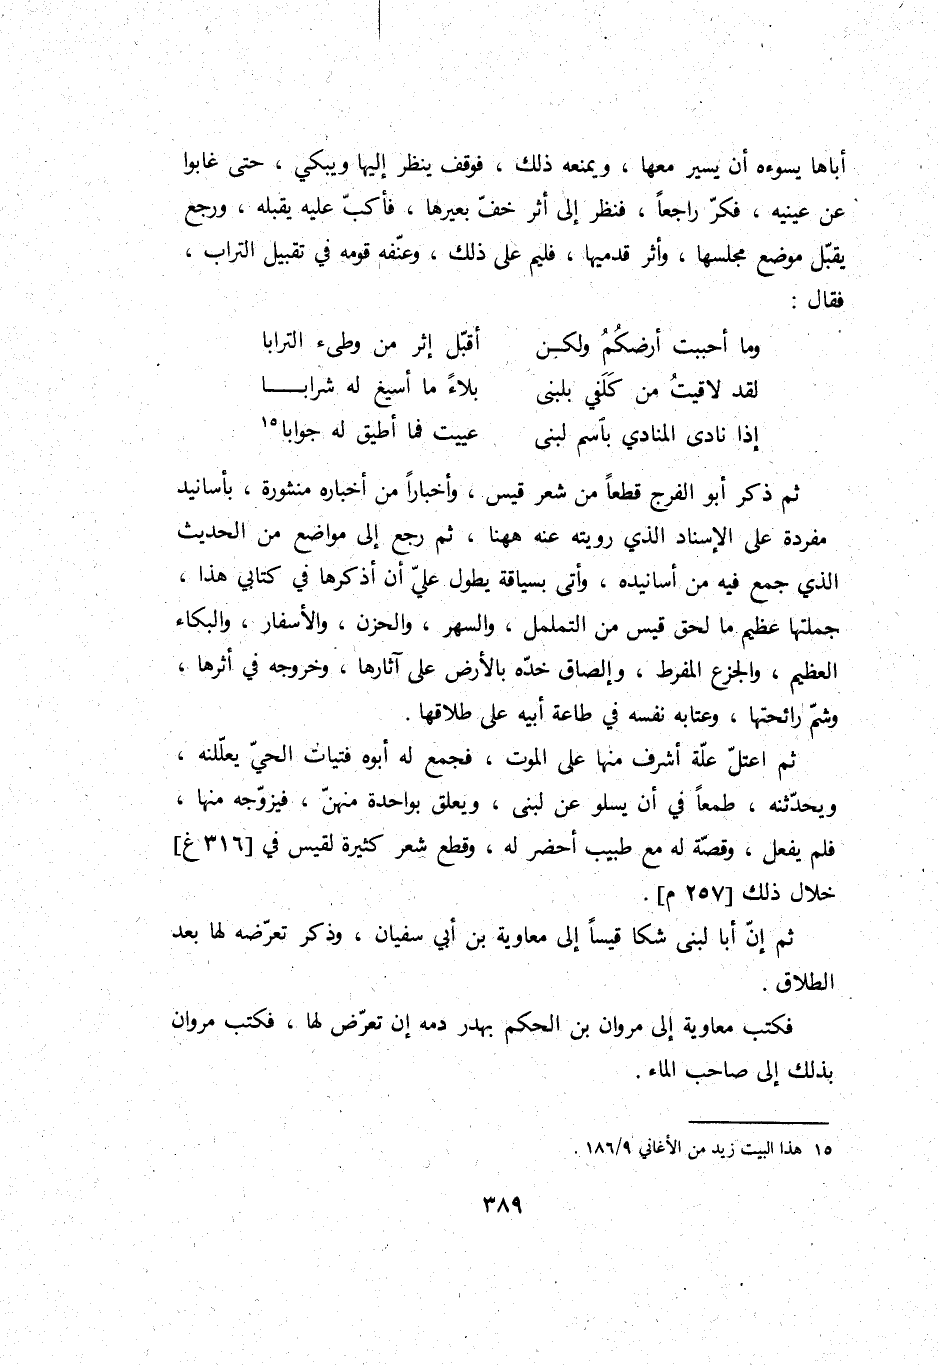 أباها يسوءه أن يسير معها ، ويمنعه ذلك ، فوقف ينظر إليها ويبكي ، حتى غابوا
عن عينيه ، فكرّ راجعاً ، فنظر إلى أثر خفّ بعيرها ، فأكبّ عليه يقبله ، ورجع
يقبّل موضع مجلسها ، وأثر قدميها ، فليم على ذلك ، وعنّفه قومه في تقبيل التراب ،
فقال :
وما أحببت أرضكُمُ ولكـن أقبّل إثر من وطىء الترابا
لقد لاقيتُ من كَلَفي بلبنى بلاءً ما أسيغ له شرابـــا
إذا نادى المنادي بٱسم لبنى عييت فما أطيق له جوابا١٥
ثم ذكر أبو الفرج قطعاً من شعر قيس ، وأخباراً من أخباره منثورة ، بأسانيد
مفردة على الإسناد الذي رويته عنه ههنا ، ثم رجع إلى مواضع من الحديث
الذي جمع فيه من أسانيده ، وأتى بسياقة يطول عليّ أن أذكرها في كتابي هذا ،
جملتها عظيم ما لحق قيس من التململ ، والسهر ، والحزن ، والأسفار ، والبكاء
العظيم ، والجزع المفرط ، وإلصاق خدّه بالأرض على آثارها ، وخروجه في أثرها ،
وشمّ رائحتها ، وعتابه نفسه في طاعة أبيه على طلاقها .
ثم اعتلّ علّة أشرف منها على الموت ، فجمع له أبوه فتيات الحيّ يعلّلنه ،
ويحدّثنه ، طمعاً في أن يسلو عن لبنى ، ويعلق بواحدة منهنّ ، فيزوّجه منها ،
فلم يفعل ، وقصّة له مع طبيب أحضر له ، وقطع شعر كثيرة لقيس في [٣١٦ غ]
خلال ذلك [٢٥٧ م] .
ثم إنّ أبا لبنى شكا قيساً إلى معاوية بن أبي سفيان ، وذكر تعرّضه لها بعد
الطلاق .
فكتب معاوية إلى مروان بن الحكم بهدر دمه إن تعرّض لها ، فكتب مروان
بذلك إلى صاحب الماء .
١٥ هذا البيت زيد من الأغاني ١٨٦/٩ .
٣٨٩